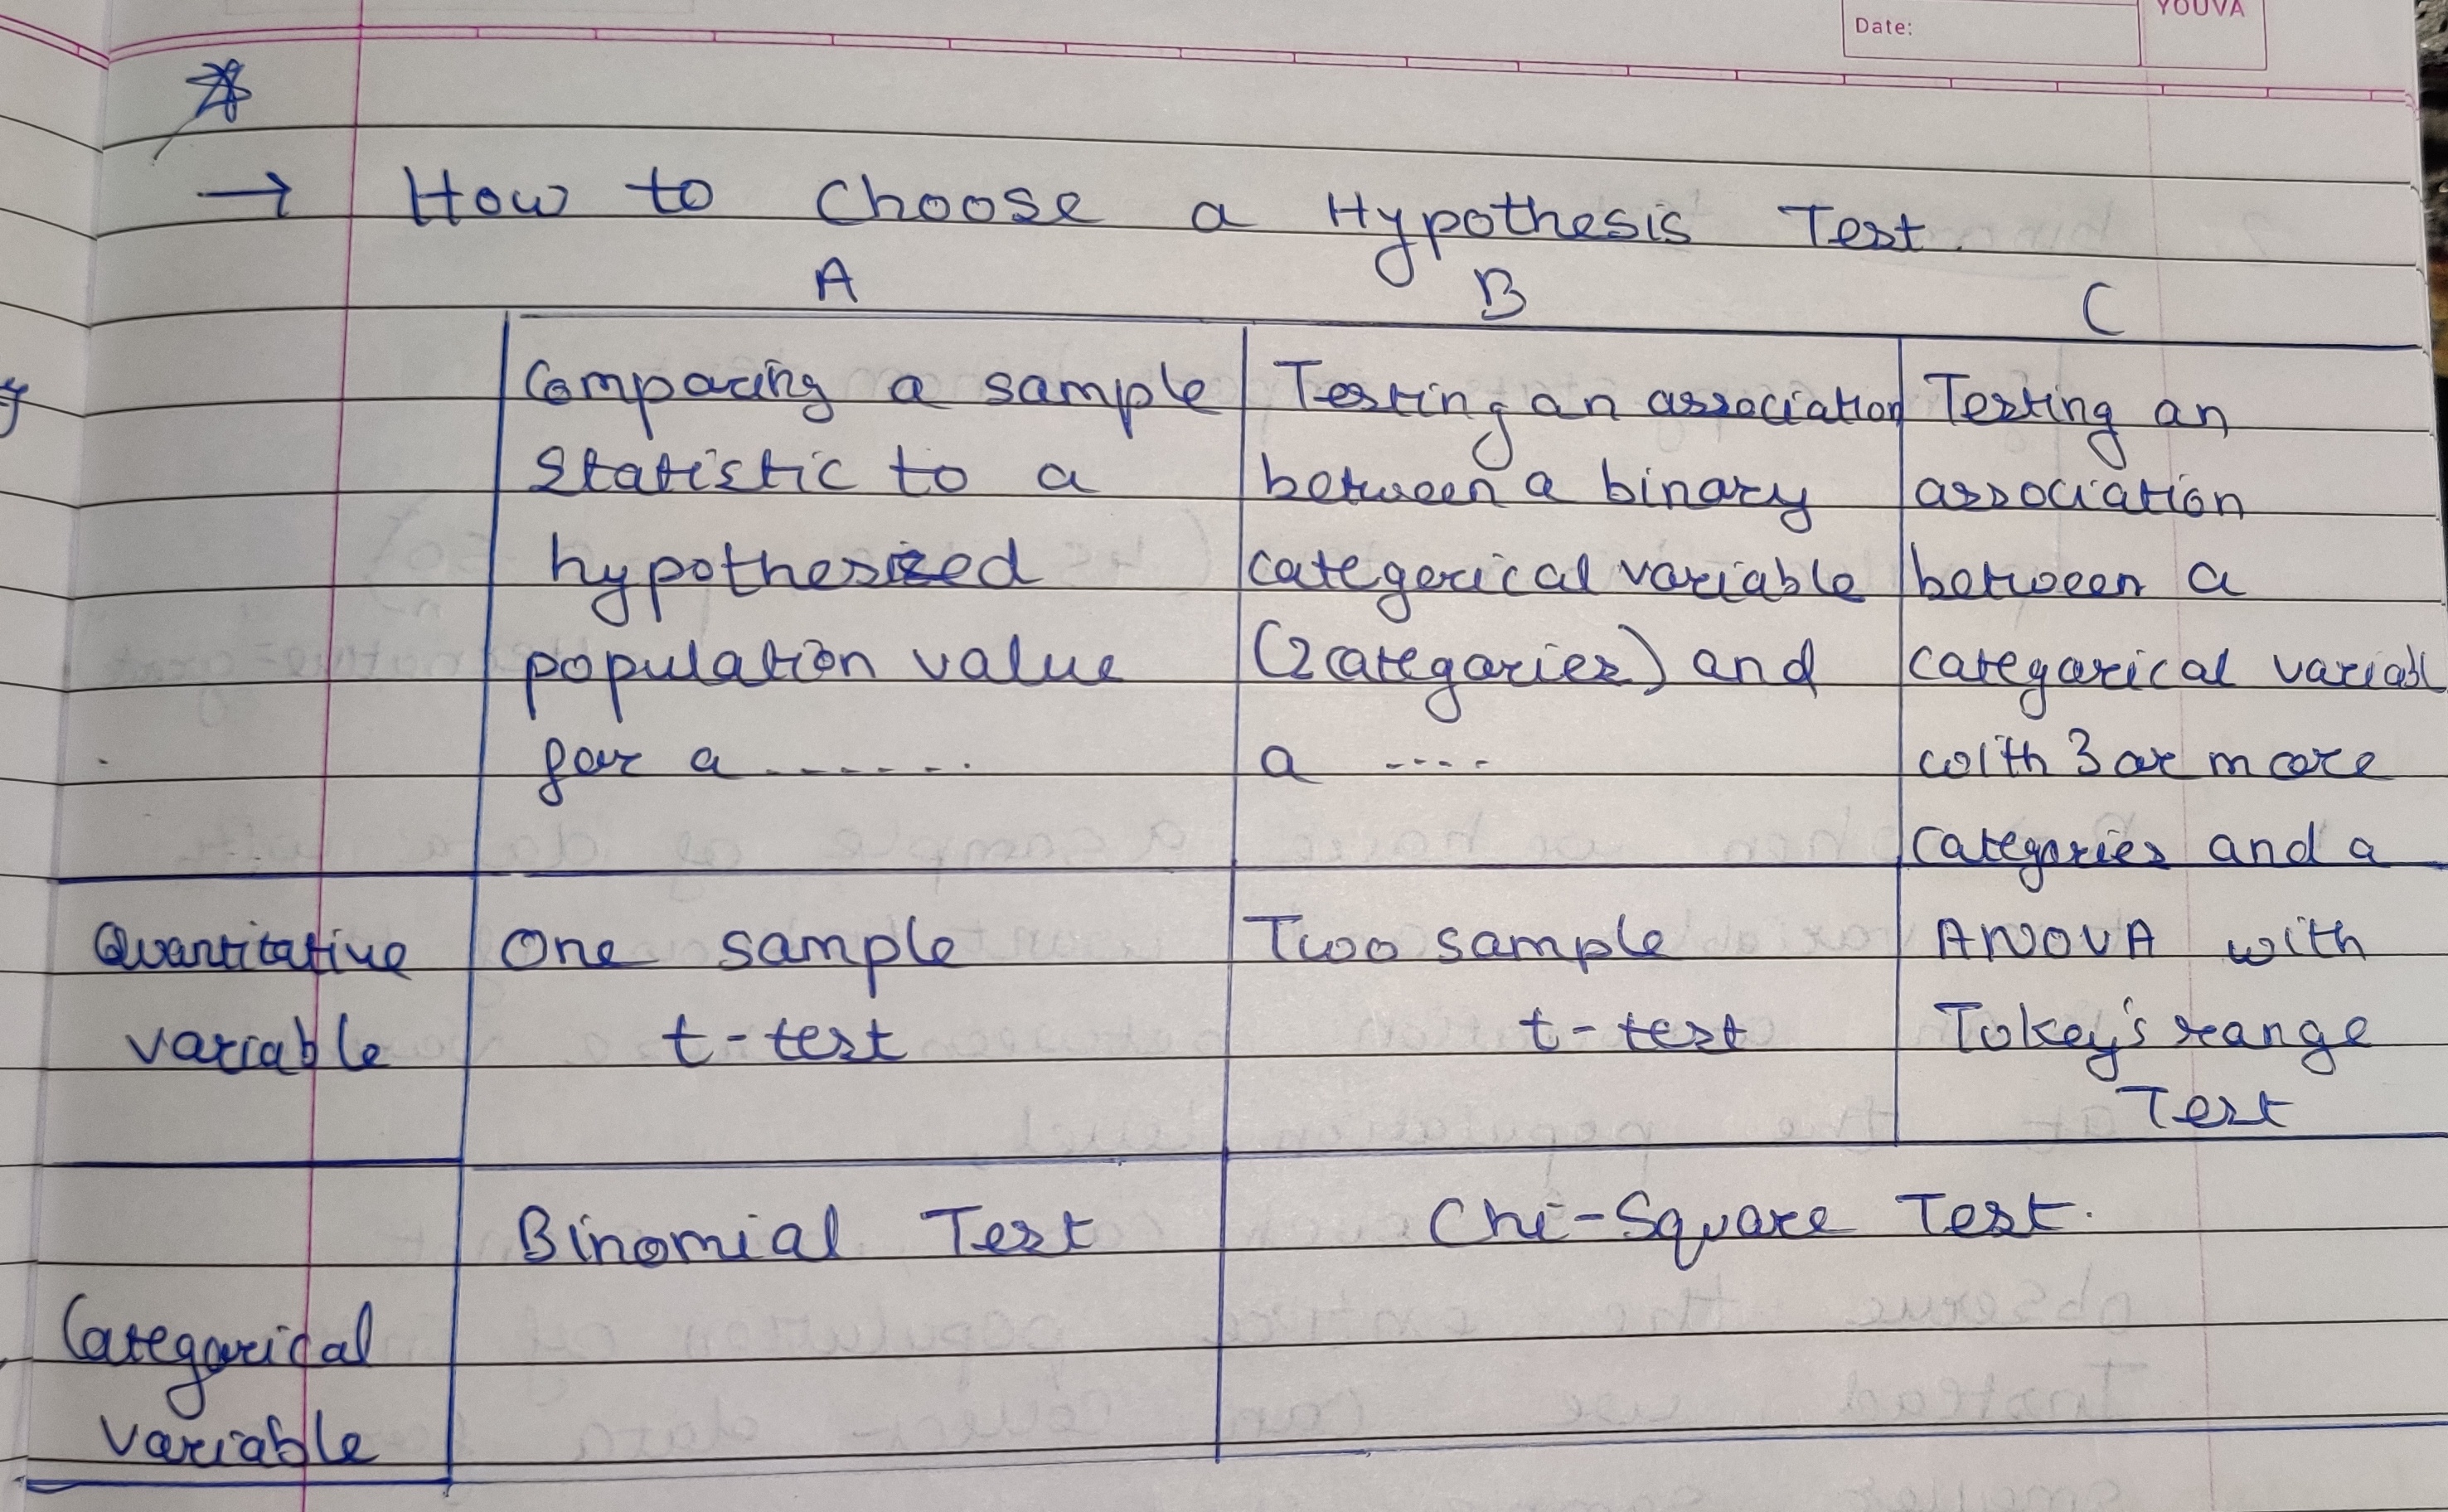 YOUVA
Date:
→ How to Choose a Hypothesis Test.
A B C
Comparing a sample
Statistic to a
hypothesized
population value
for a .......
Testing an association
between a binary
categorical variable
(2 categories) and
a ....
Testing an
association
between a
categorical variabl
with 3 or more
categories and a
Quantitative
variable
One sample
t-test
Two sample
t-test
ANOVA with
Tukey's range
Test
Categorical
variable
Binomial Test
Chi-Square Test.